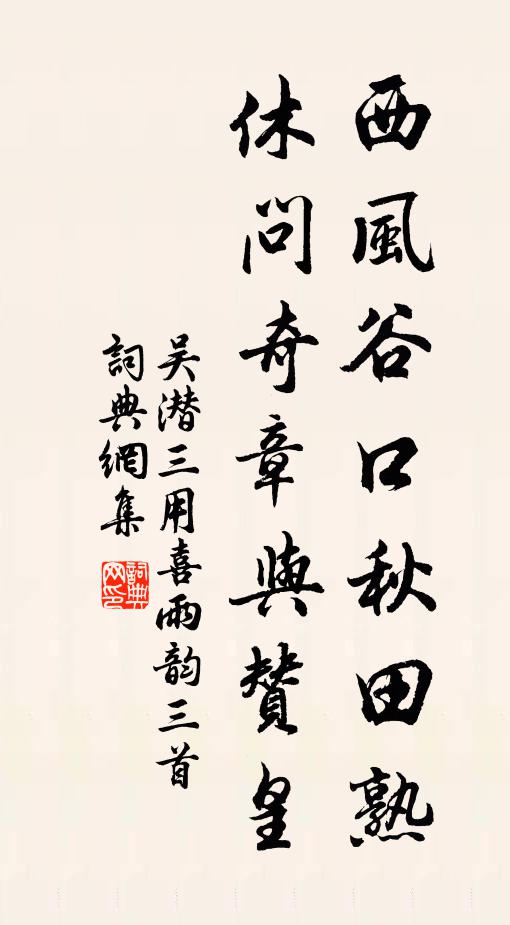 西風谷口秋田熟
休問奇章與贊皇
吴潜三用喜雨韵三首
詞典網集
詞典网印